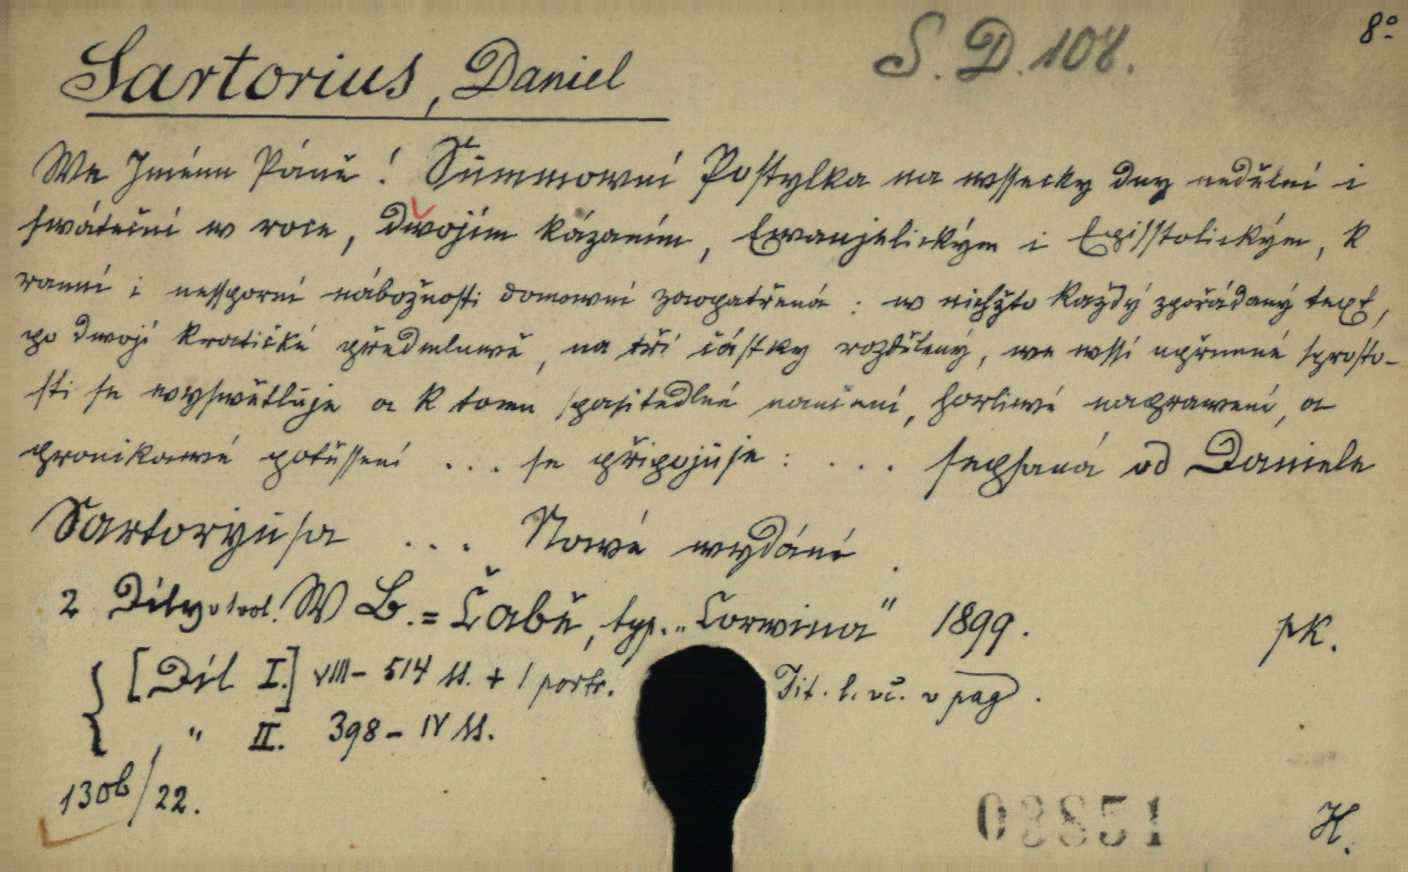 8°
S. D. 108.
Sartorius, Daniel
We Jménu Páně! Summowní Postylka na wssecky dny nedělní i
swáteční w roce, dwojím kázaním, Ewanjelickým i Episstolickým, k
ranní i nessporní nábožnosti domowní zaopatřená: w nichžto každý zpořádaný text,
po dwojí kratičké předmluwě, na tři částky rozdělený, we wssí upřímné sprosto-
sti se wyswětluje a k tomu spasitedlné naučení, horliwé naprawení, a
pronikawé potěssení ... se připojuje: ... sepsaná od Daniele
Sartoryusa ... Nowé wydání.
2 Díly v 1 vol. W B. = Čabě, typ. „Corwina" 1899. pk.
[Díl I.] VIII - 514 ss. + 1 portr. Tit. l. vč. v pag.
" II. 398 - IV ss.
130b/22.
03851
H.